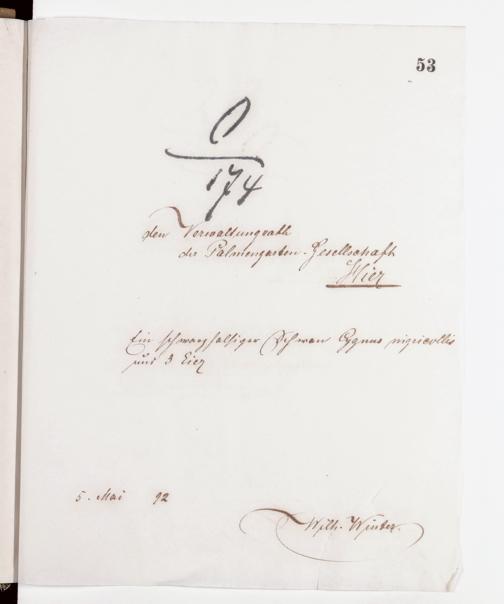 53
O
174
den Verwaltungrath
der Palmengarten-Gesellschaft
Hier
Ein schwarzhalsiger Schwan Cygnus nigricollis
und 3 Eier
5. Mai 92
Wilh. Winter.